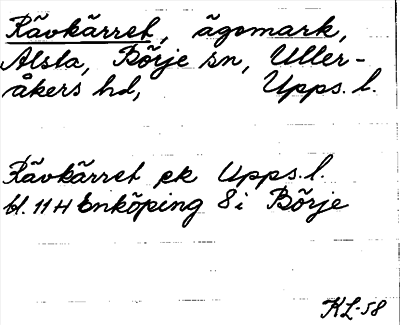 Rävkärret, ägomark,
Alsta, Börje sn, Uller-
åkers hd, Upps. l.
Rävkärret ek Upps. l.
bl. 11 H Enköping 8 i Börje
KL-58